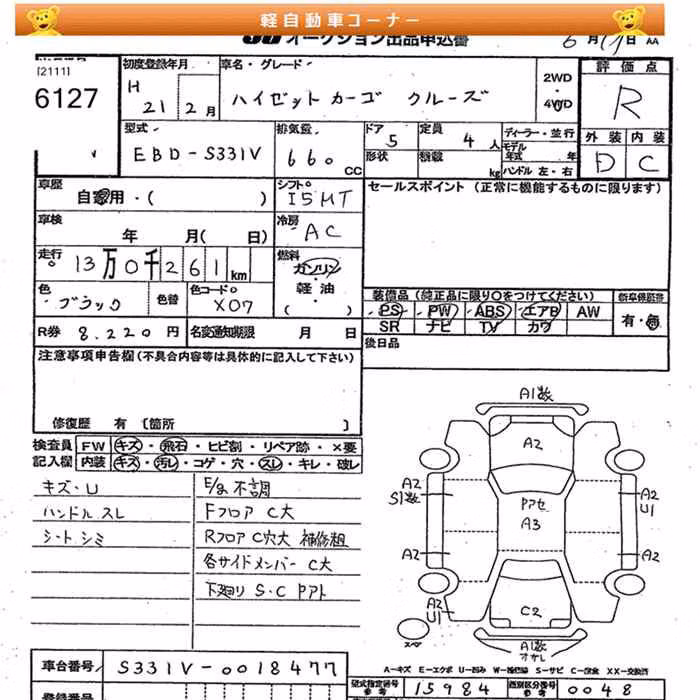 軽自動車コーナー
オークション出品申込書 6月17日 AA
[2111]
6127
初度登録年月 H 21 2月
車名・グレード ハイゼットカーゴ クルーズ
2WD・4WD
評価点 R
型式 EBD-S331V
排気量 660 CC
ドア 5 定員 4人
形状 積載 kg
ディーラー・並行
モデル年式 年
ハンドル 左・右
外装 内装
D C
車歴 自家用・( )
シフト I5MT
セールスポイント (正常に機能するものに限ります)
車検 年 月( 日)
冷房 AC
走行 13万0千261km
燃料 ガソリン 軽・油 ( )
色 ブラック 色替 色コードNo. X07
装備品 (純正品に限り〇をつけてください)
PS PW ABS エアB AW
SR ナビ TV カワ
新車保証書 有・無
R券 8.220円 名変通知期限 月 日
後日品
注意事項申告欄 (不具合内容等は具体的に記入して下さい)
修復歴 有 〔箇所 〕
検査員 FW キズ・飛石・ヒビ割・リペア跡・×要
記入欄 内装 キズ・汚レ・コゲ・穴・スレ・キレ・破レ
キズ・U
ハンドル スレ
シート シミ
E/g 不調
Fフロア C大
Rフロア C穴大 補修粗
各サイドメンバー C大
下廻り S・C Pアト
A1数
A2
A2 S1数
Pアセ A3
A2 U1
A2
A2
A2 U1
C2
スペア
A1数 オサレ
A-キズ E-エクボ U-凹み W-補修跡 S-サビ C-腐食 XX-交換済
車台番号 S331V-0018477
型式指定番号 参考 15984
類別区分番号 参考 0048
登録番号